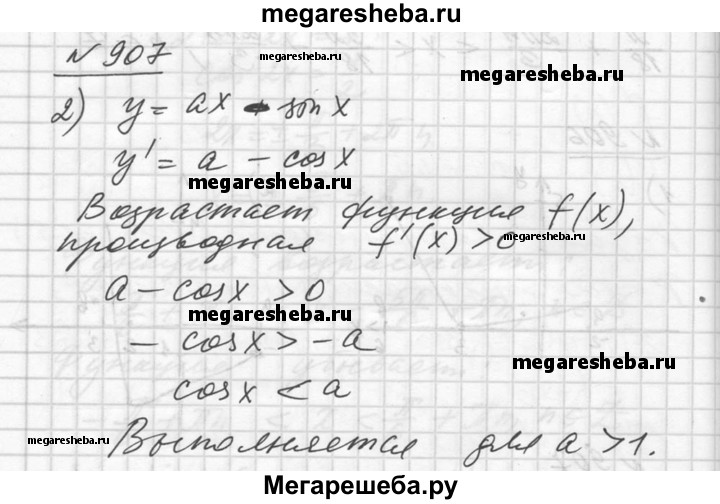 megaresheba.ru
№ 907
megaresheba.ru
megaresheba.ru
2) y = ax - sin x
y' = a - cos x
megaresheba.ru
Возрастает функция f(x),
производная f'(x) > 0
a - cos x > 0
megaresheba.ru
- cos x > - a
megaresheba.ru
cos x < a
megaresheba.ru
megaresheba.ru
Выполняется для a > 1.
Мегарешеба.ру